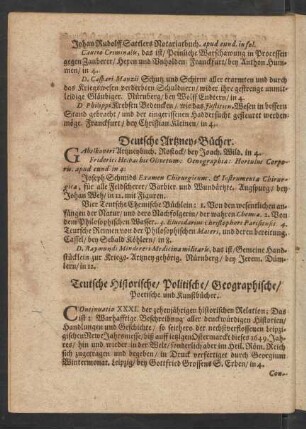 Johan Rudolff Sattlers Notariatbuch. apud eund. in fol.
Cautio Criminalis, das ist/ Peinliche Warschawung in Processen
gegen Zauberer/ Hexen und Unholden. Franckfurt/ bey Anthon Hum-
men/ in 4.
D. Caspari Manzii Schutz und Schirm aller erarmten und durch
das Kriegswesen verderbten Schuldnern/ wider ihre gestrenge unmit-
leidige Gläubiger. Nürnberg/ ben Wolf Endtern/ in 4.
D. Philippi Krebsen Bedencken/ wie das Justitien-Wesen in bessern
Stand gebracht/ und der angerissenen Sachen gesteuret werden
möge. Franckfurt/ bey Christian Kleinen/ in 4.
Deutsche Artzney-Bücher.
GAbelkoveri Artzneybuch. Rostock/ bey Joach. Wild. in 4.
Friderici Hornuci Oinotomus: Oenographia: Hornuloe Corpo-
ris. apud eund. in 4.
Joseph Schmids Examen Chirurgicum, & Instrumenta Chirur-
gica, für alle Feldscherer/ Barbier und Wundärtzte. Augspurg/ bey
Johan Wehe/ in 12. mit Figuren.
Vier Teutsche Chemische Büchlein: 1. Von den wesentlichen an-
fängen der Natur/ und dero Nachfolgerin/ der wahren Chemia. 2. Von
den Philosophischen Wasser. 3. Elucidarius Christophori Parisiensis. 4.
Teutsche Reimen von der Philosophischen Materi, und deren bereitung.
Cassel/ bey Schald Köhlern/ in 8.
D. Raymundi Mindereri Medicina militaris, das ist/ Gemeine Hand-
stücklein zur Kriegs-Artzney gehörig. Nürnberg/ bey Jerem. Düm-
lern/ in 12.
Teutsche Historische/ Politische/ Geographische/
Poetische und Kunstbücher.
COntinuatio XXXI. der zehenjährigen historischen Relation; Das
ist: Warhafftige Beschreibung aller denckwürdigen Historien/
Handlungen und Geschichte/ so seithero der nechstverflossenen leipzi-
gischen NeweJahrsmesse, biß auff ietzigen Ostermarckt dieses 1649. Jah-
res/ hin und wider in der Welt/ sonderlich aber im Heil. Röm. Reich
sich zugetragen und begeben/ in Druck verfertiget durch Georgium
Wintermonat. Leipzig/ bey Gottfried Grossens S. Erben/ in 4.
Con-